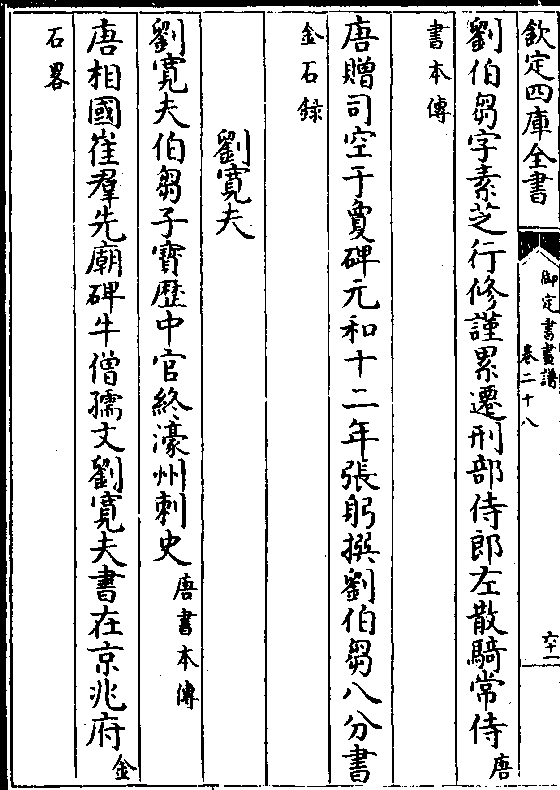 欽定四庫全書
御定書畫譜
卷二十八
六十二
劉伯芻字素芝行修謹累遷刑部侍郎左散騎常侍唐
書本傳
唐贈司空于夐碑元和十二年張躬撰劉伯芻八分書
金石録
劉寛夫
劉寛夫伯芻子寳歴中官終濠州刺史唐書本傳
唐相國崔羣先廟碑牛僧孺文劉寛夫書在京兆府金
石畧